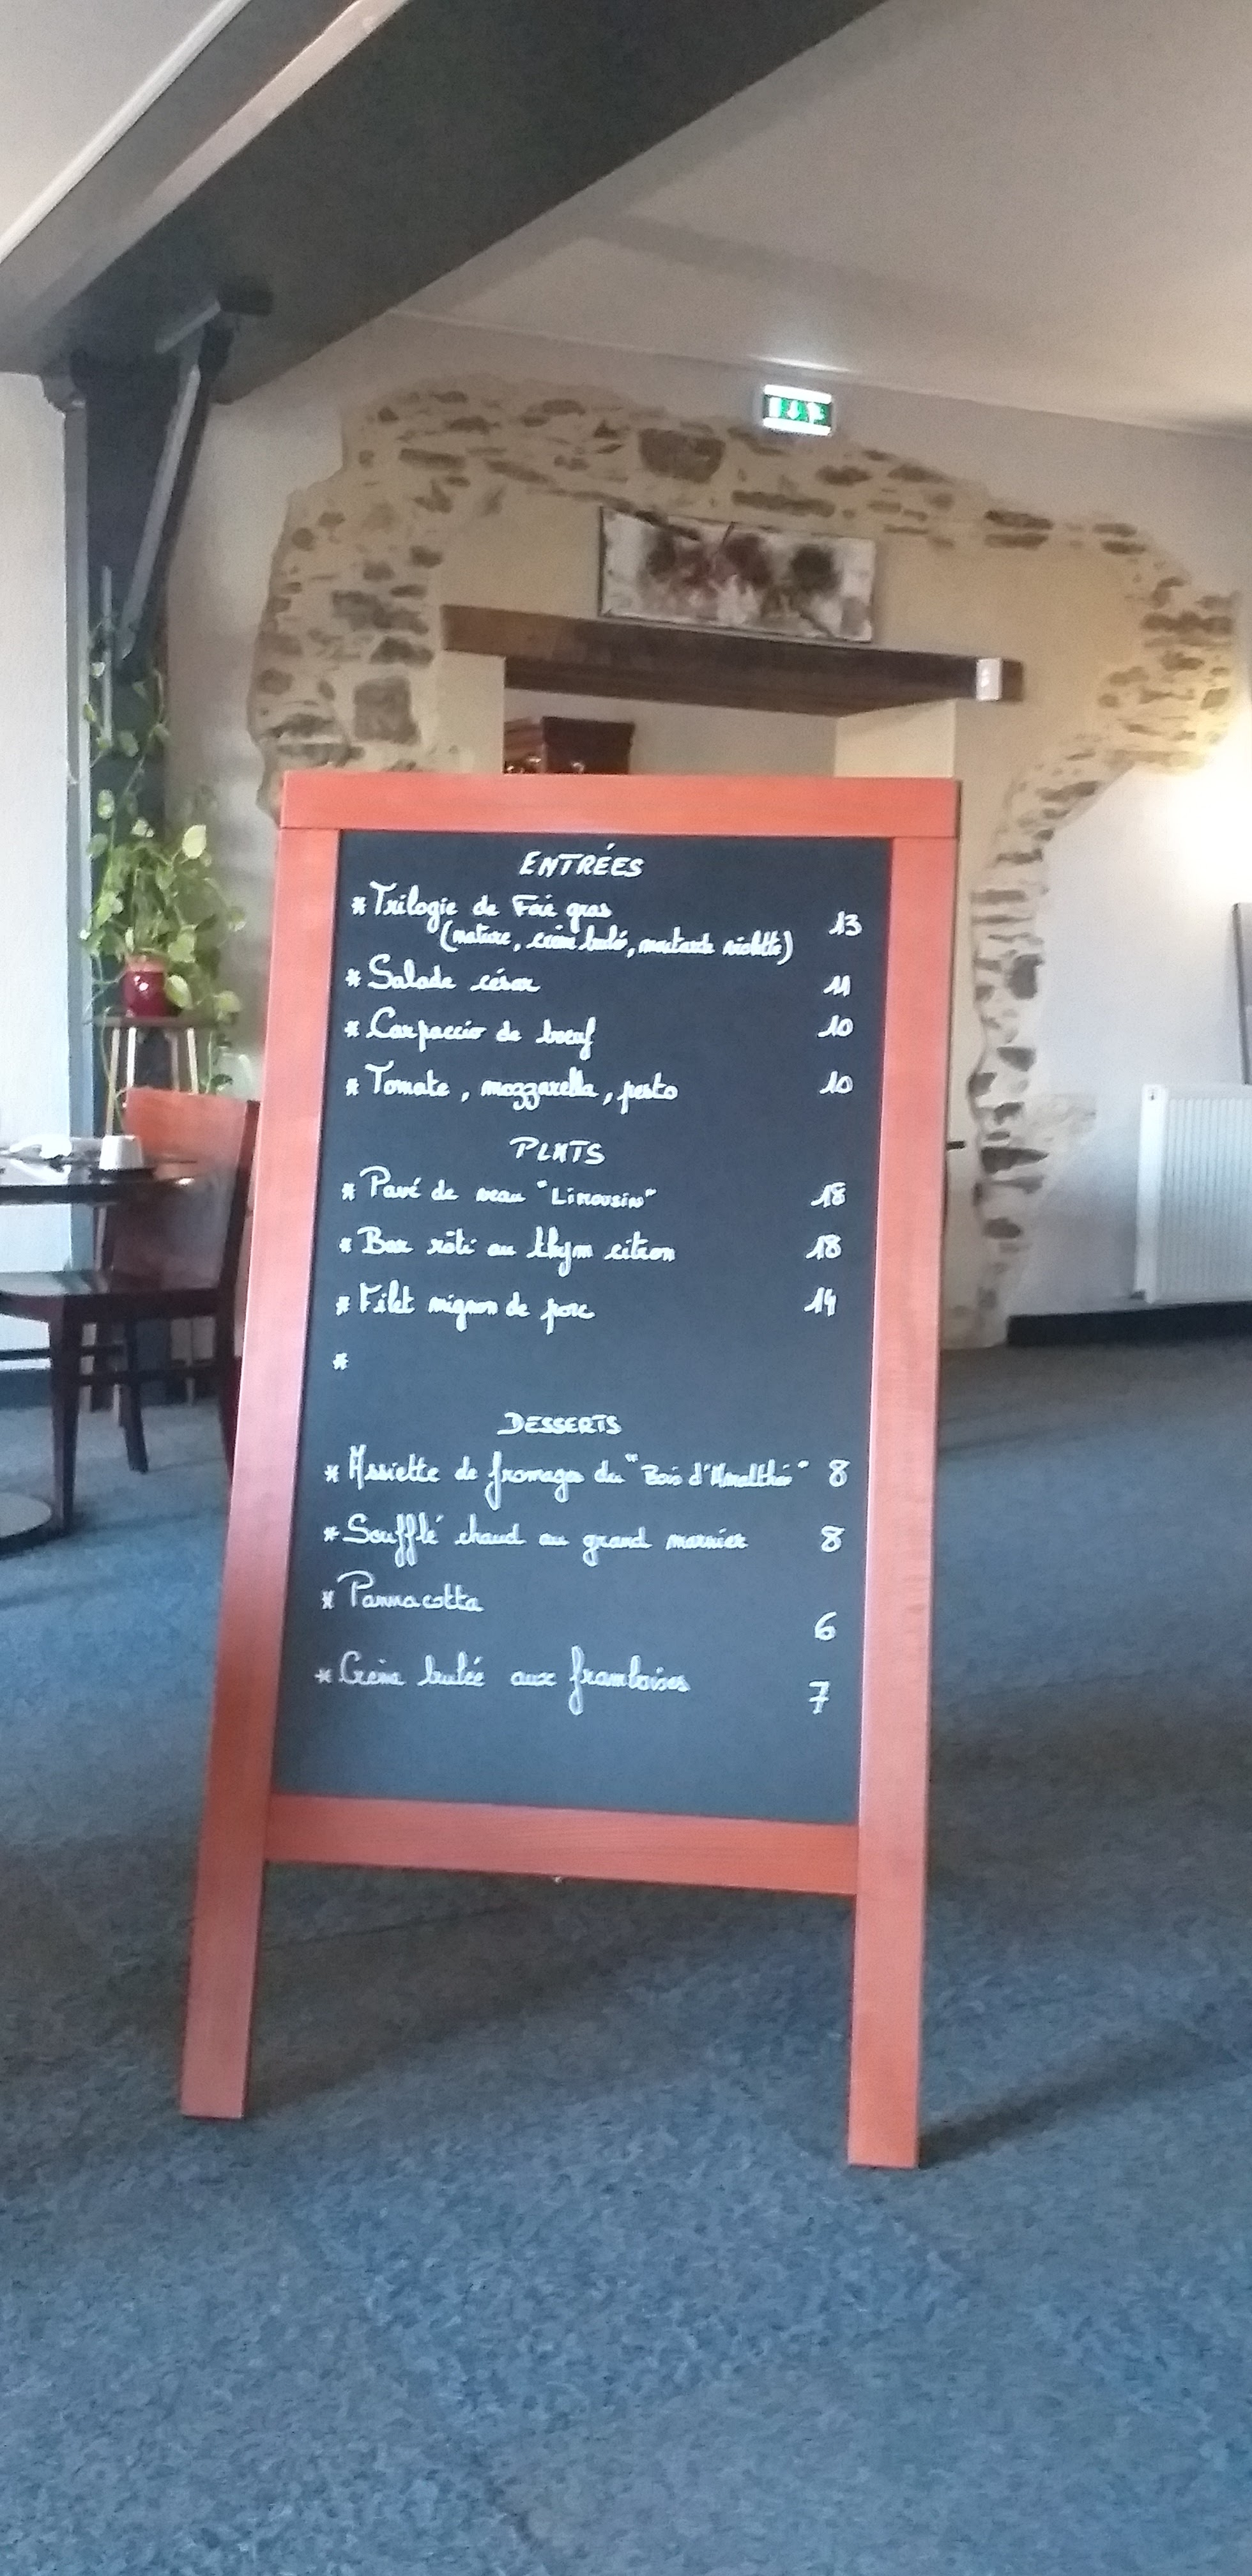 ENTRÉES
* Trilogie de Foie gras 13
(nature, crème brulée, moutarde violette)
* Salade césar 11
* Carpaccio de boeuf 10
* Tomate, mozzarella, pesto 10
PLATS
* Pavé de veau "Limousin" 18
* Bar rôti au thym citron 18
* Filet mignon de porc 14
*
DESSERTS
* Assiette de fromages du "Bois d'Amalthée" 8
* Soufflé chaud au grand marnier 8
* Panna cotta 6
* Crème brulée aux framboises 7